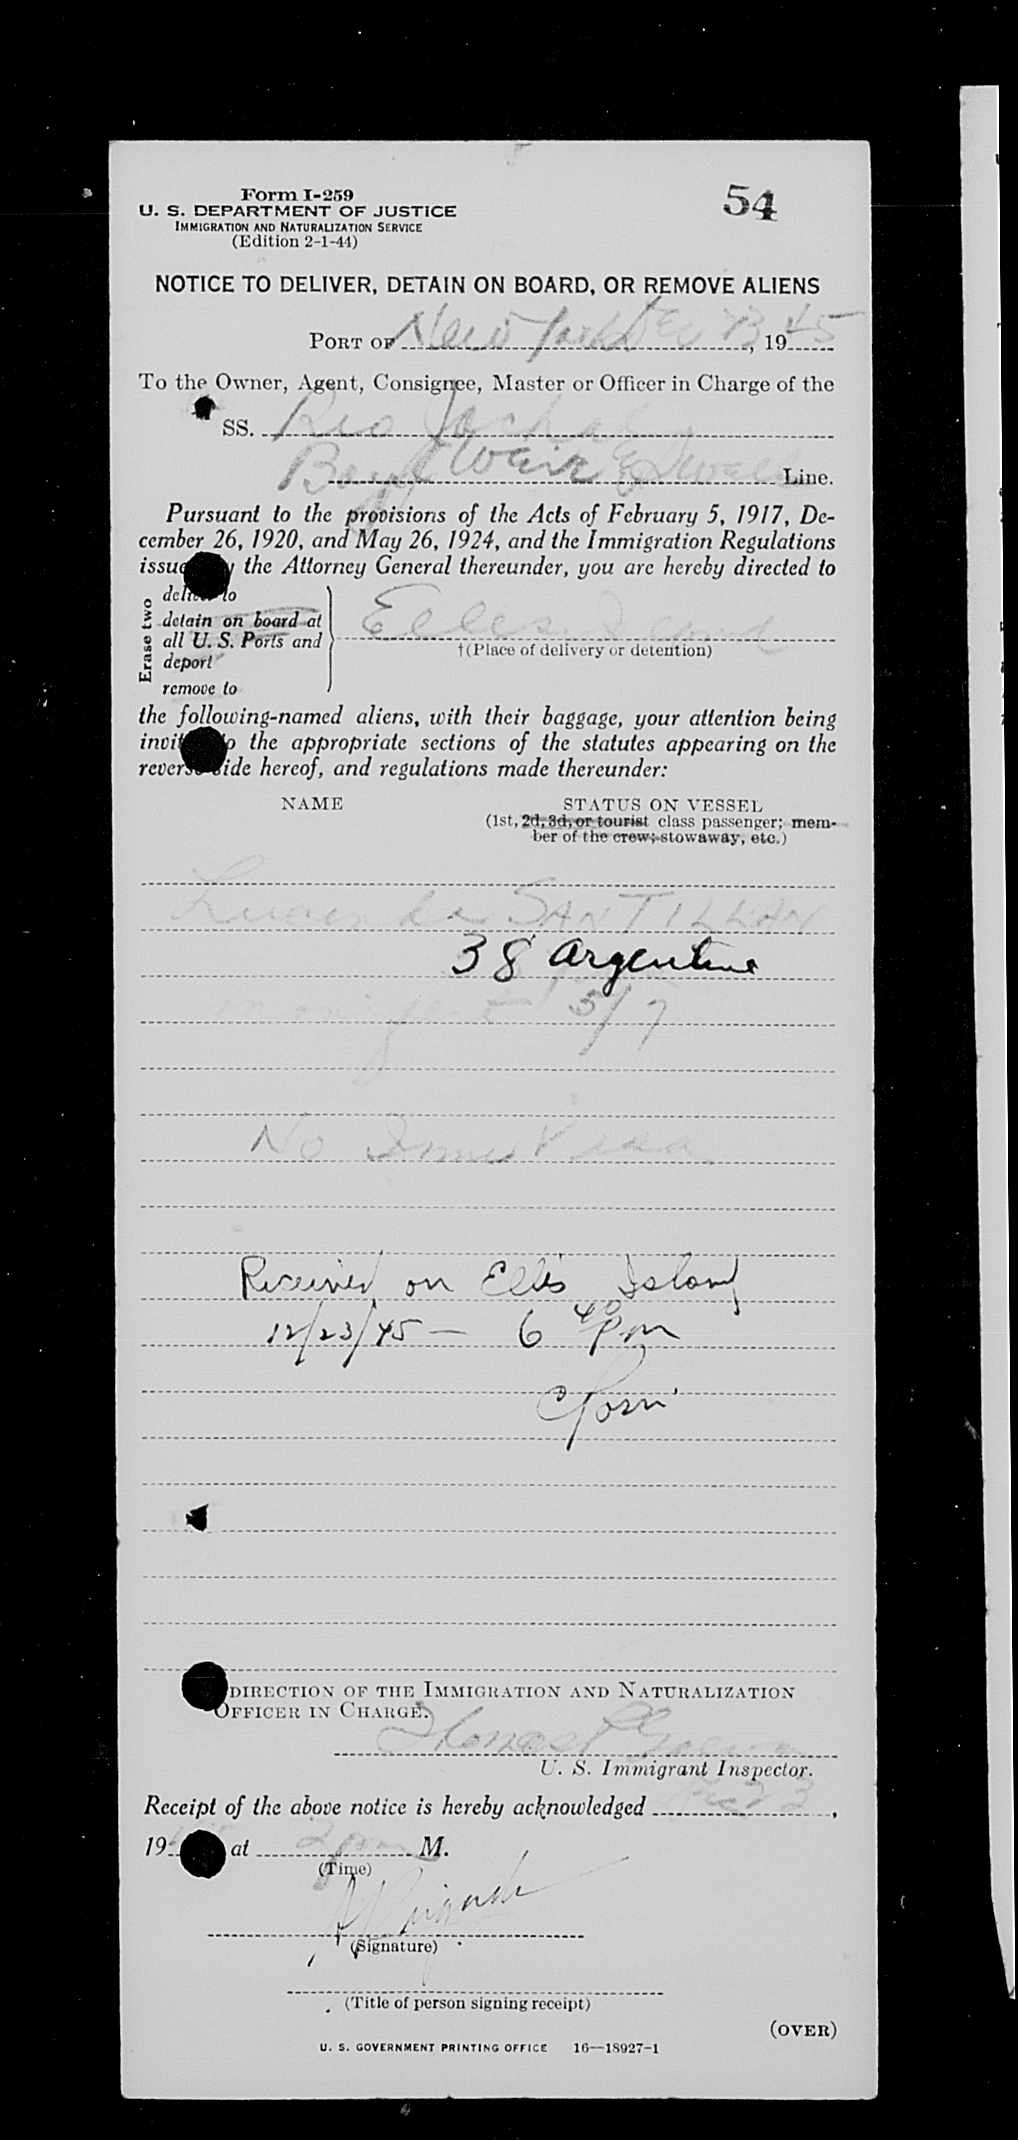 Form I-259
54
U. S. DEPARTMENT OF JUSTICE
IMMIGRATION AND NATURALIZATION SERVICE
(Edition 2-1-44)
NOTICE TO DELIVER, DETAIN ON BOARD, OR REMOVE ALIENS
PORT OF New York Dec 23, 1945
To the Owner, Agent, Consignee, Master or Officer in Charge of the
SS. Rio Jachal
Boyd Weir & Sewell Line.
Pursuant to the provisions of the Acts of February 5, 1917, De-
cember 26, 1920, and May 26, 1924, and the Immigration Regulations
the Attorney General thereunder, you are hereby directed to
Erase two
deliver to
detain on board at
all U. S. Ports and
deport
remove to
Ellis Island
†(Place of delivery or detention)
the following-named aliens, with their baggage, your attention being
the appropriate sections of the statutes appearing on the
reverse side hereof, and regulations made thereunder:
NAME STATUS ON VESSEL
(1st, 2d, 3d, or tourist class passenger; mem-
ber of the crew; stowaway, etc.)
Lucinda SANTILLAN
38 Argentine
manifest 5/7
No Imm Visa
Received on Ellis Island
12/23/45 — 6 40 pm
DIRECTION OF THE IMMIGRATION AND NATURALIZATION
OFFICER IN CHARGE.
Thomas
U. S. Immigrant Inspector.
Receipt of the above notice is hereby acknowledged Dec 23,
19 at 2 pm M.
(Time)
(Signature)
(Title of person signing receipt)
(OVER)
U. S. GOVERNMENT PRINTING OFFICE 16—18927-1